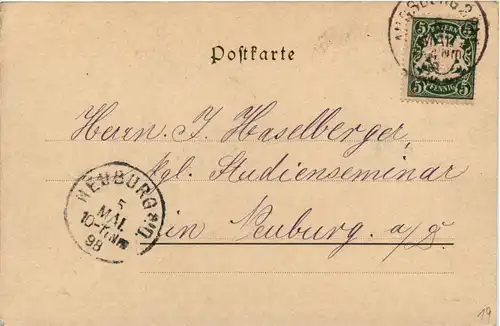 Postkarte
AUGSBURG 2
BAYERN
5 5
MAI
5 PFENNIG 5
Herrn J. Haselberger,
kgl. Studienseminar
in Neuburg. a/D.
NEUBURG a/D.
5
MAI.
98
19